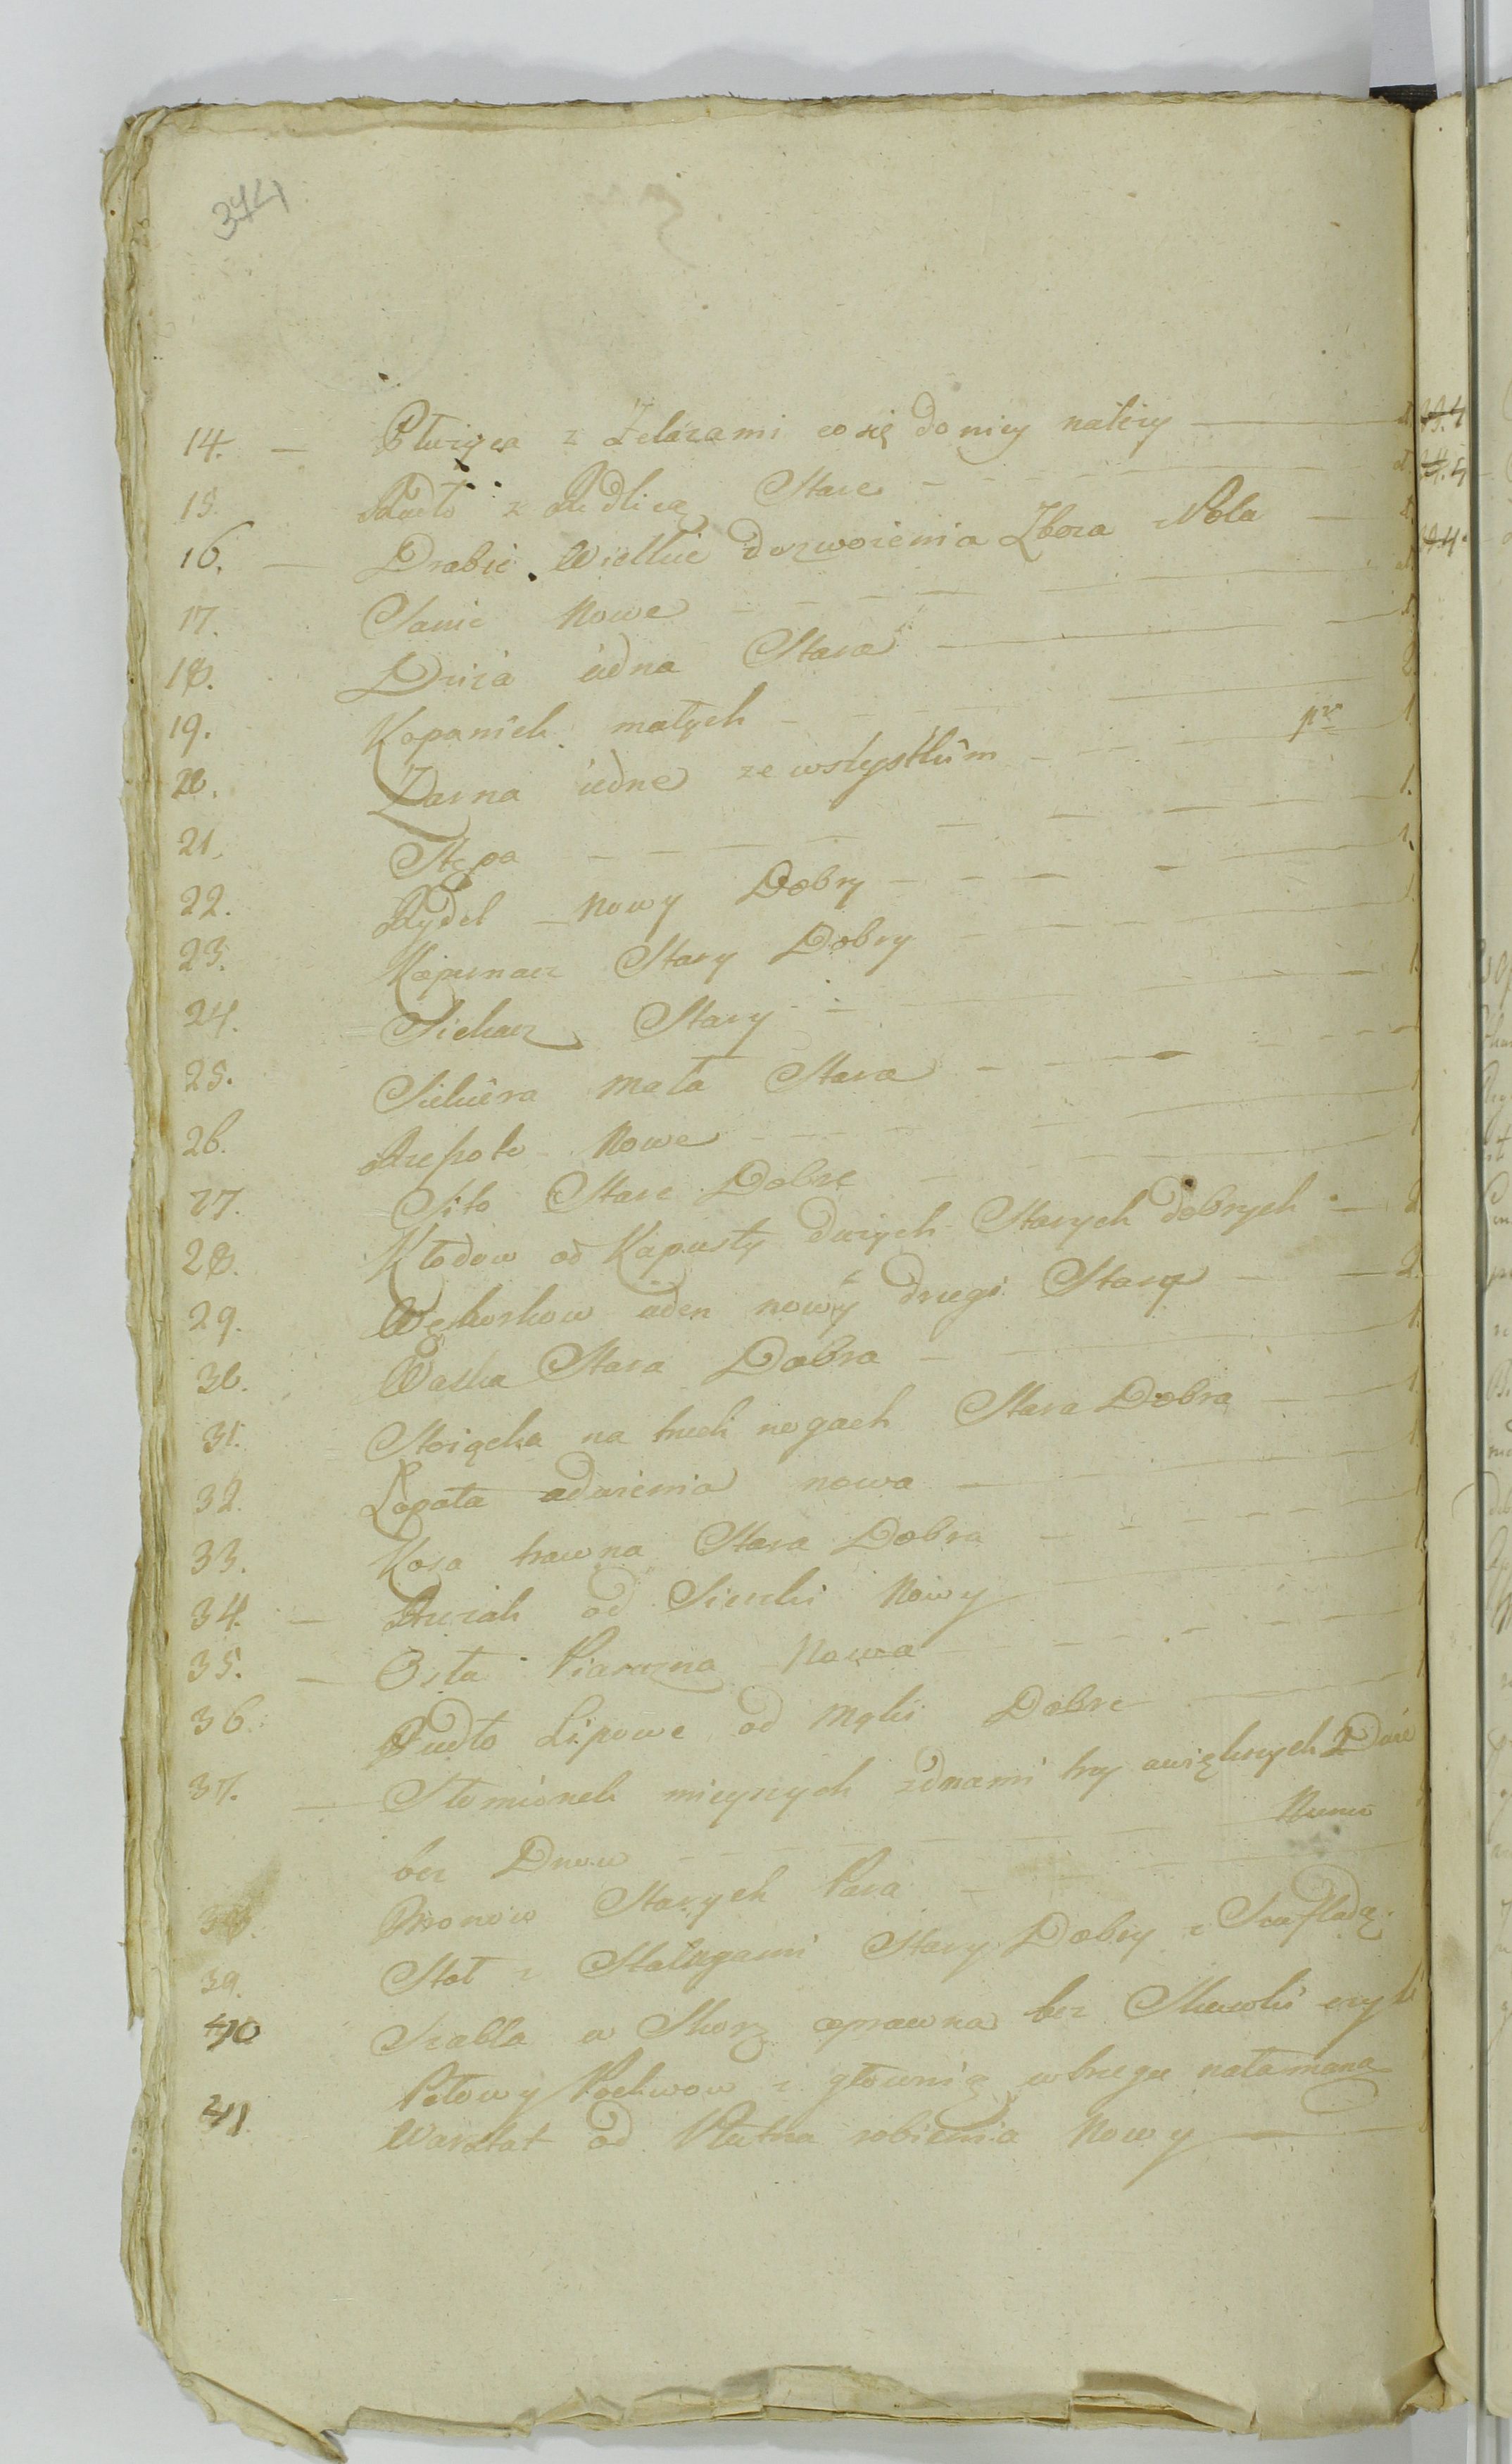 374
14. — Płużyca z Zelazami co się do niey należy — 1.
15. Radło z Radlicą Stare - - - 1.
16. — Drabie Wielkie do zwożenia Zboża z Pola — 1.
17. Sanie Nowe - - - 1.
18. Dziża iedna Stara — 1.
19. Kopaniek małych - - - 2.
20. Żarna iedne ze wszystkim - - - pr 1
21. Stępa - - - 1.
22. Rydel Nowy Dobry - - - 1.
23. Kopernacz Stary Dobry - - - 1.
24. Siekacz Stary - - - 1.
25. Siekiera mała Stara - - -
26. Rzeszoto Nowe - - - 1
27. Sito Stare Dobre - - - 1
28. Kłodow od Kapusty dużych Starych dobrych — 2
29. Węborkow ieden nowy drugi Stary — 2.
30. Waska Stara Dobra - - - 1.
31. Stoiączka na trzech nogach Stara Dobra — 1.
32. Łopata nowa — 1.
33. Kosa trawna Stara Dobra - - - 1
34. — od Sieczki Nowy — 1
35. — Nowa - - - 1
36. Pudło Lipowe od Mąki Dobre — 1
37. — Słomionek mieyszych z dnami trzy a większych 2 Duże
bez Dnow - - - Numer
38. Bronow Starych Para -
39. Stoł z Stalugami Stary Dobry z Szufladą.
40 Szabla w Skorę oprawna bez
Połowy Pochwow z głownią w brzegu nałamana
41. Warsztat od Płutna robienia Nowy —